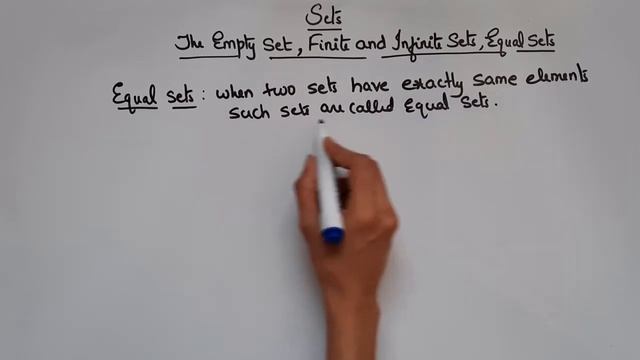 Sets
The Empty Set, Finite and Infinite Sets, Equal Sets
Equal sets : when two sets have exactly same elements
such sets are called Equal Sets.